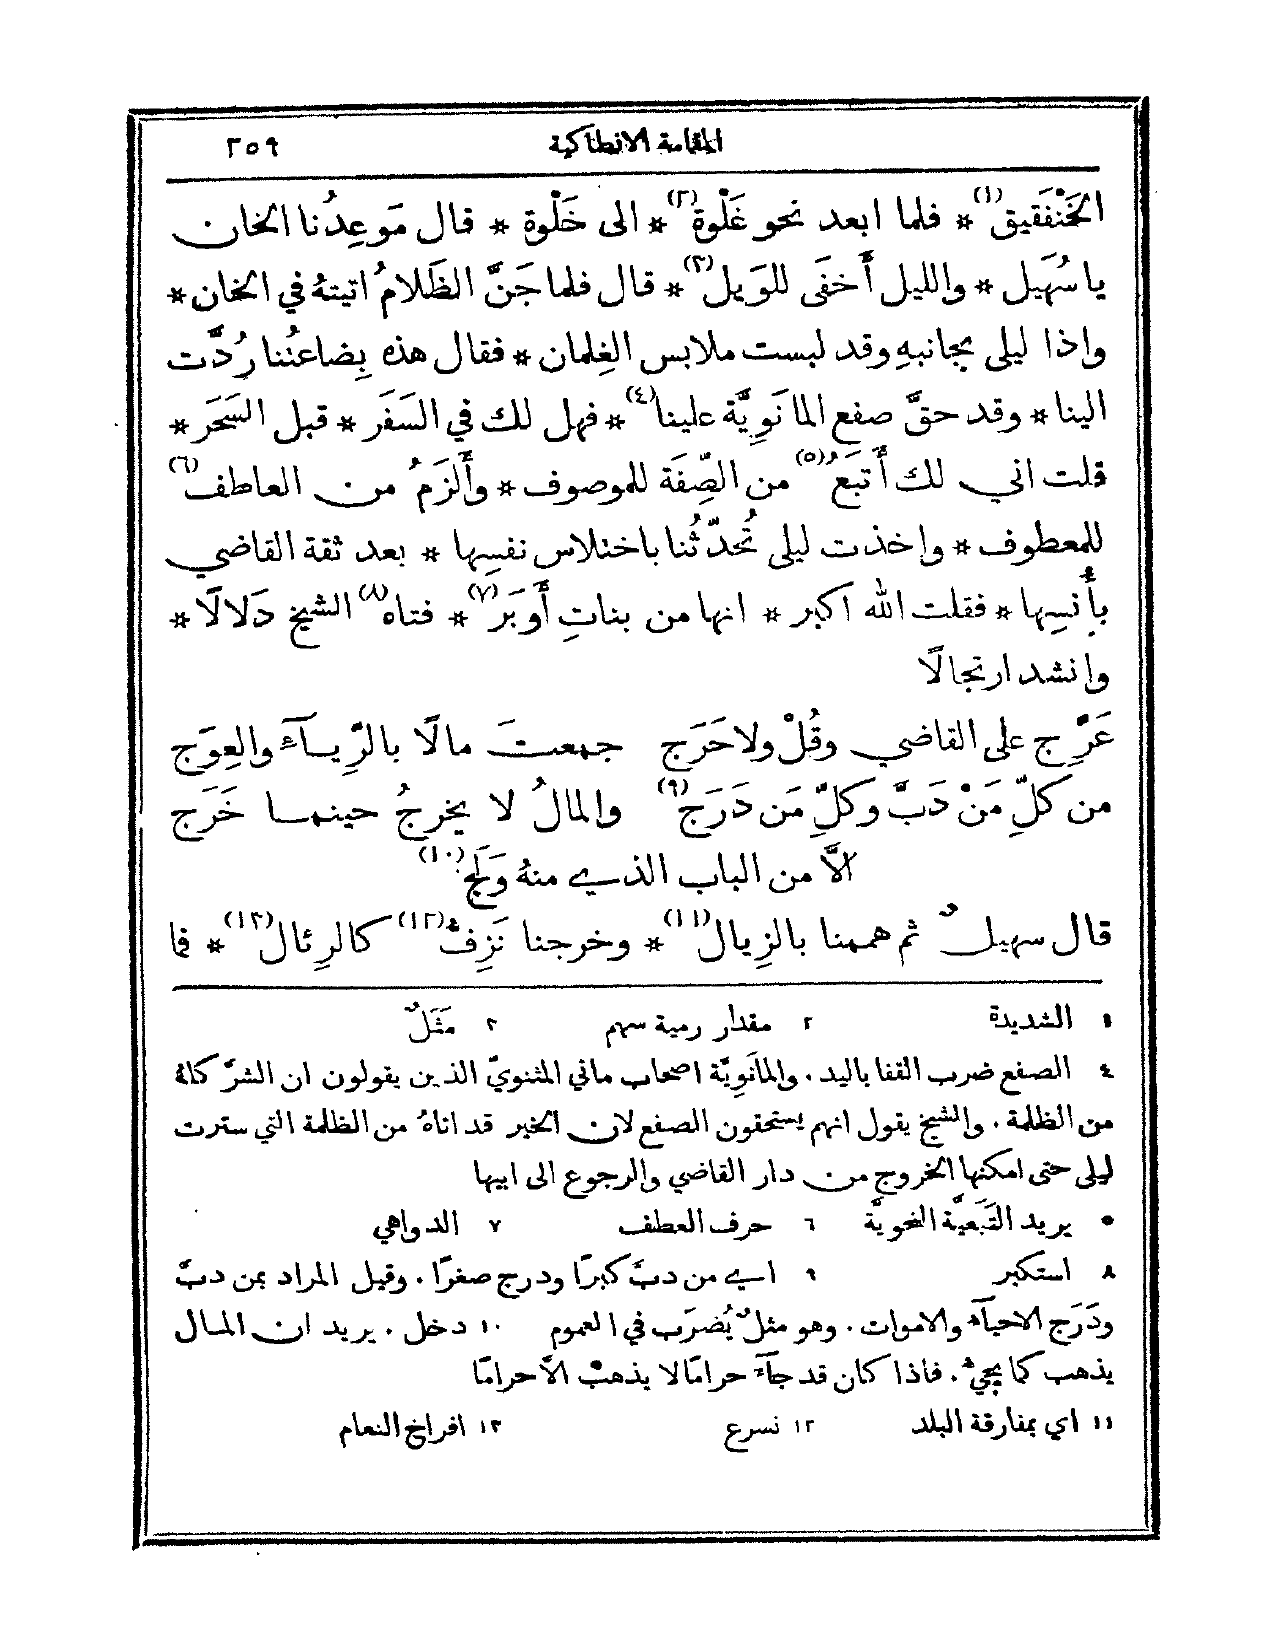 المقامة الانطاكية ٢٥٩
الخَنْفَقيق(١) * فلما ابعد نحو غَلْوة(٢) * الى خَلْوة * قال مَوعِدُنا الخان
يا سُهَيل * والليل أَخفَى للوَيل(٣) * قال فلما جَنَّ الظَلامُ اتيتهُ في الخان *
واذا ليلى بجانبهِ وقد لبست ملابس الغِلمان * فقال هذه بِضاعتُنا رُدَّت
الينا * وقد حقَّ صفع المانَوِيَّة علينا(٤) * فهل لك في السَفَر * قبل السَحَر *
قلت اني لك أَتبَعُ(٥) من الصِّفَة للموصوف * وأَلزَمُ من العاطف(٦)
للمعطوف * واخذت ليلى تُحدِّثُنا باختلاس نفسِها * بعد ثقة القاضي
بأُنسِها * فقلت الله اكبر * انها من بناتِ أَوبَرَ(٧) * فتاه(٨) الشيخ دَلالًا *
وانشد ارتجالًا
عَرِّج على القاضي وقُلْ ولا حَرَج جمعتَ مالًا بالرِّيآءِ والعِوَج
من كلِّ مَنْ دَبَّ وكلِّ مَن دَرَج(٩) والمالُ لا يخرجُ حينما خَرَج
الَّا من الباب الذي منهُ وَلَج(١٠)
قال سهيلٌ ثم هممنا بالزِيال(١١) * وخرجنا نَزِفُّ(١٢) كالرِئال(١٣) * فما
١ الشديدة ٢ مقدار رمية سهم ٣ مَثَلٌ
٤ الصفع ضرب القفا باليد. والمانَوِيَّة اصحاب ماني المثنويّ الذين يقولون ان الشرّ كلهُ
من الظلمة. والشيخ يقول انهم يستحقون الصفع لان الخير قد اتاهُ من الظلمة التي سترت
ليلى حتى امكنها الخروج من دار القاضي والرجوع الى ابيها
٥ يريد التَبَعيَّة النحويَّة ٦ حرف العطف ٧ الدواهي
٨ استكبر ٩ اي من دبَّ كبرًا ودرج صغرًا. وقيل المراد بمن دبَّ
ودَرَج الاحيآء والاموات. وهو مثلٌ يُضرَب في العموم ١٠ دخل. يريد ان المال
يذهب كما يجيء. فاذا كان قد جآءَ حرامًا لا يذهبُ الَّا حرامًا
١١ اي بمفارقة البلد ١٢ نسرع ١٣ افراخ النعام